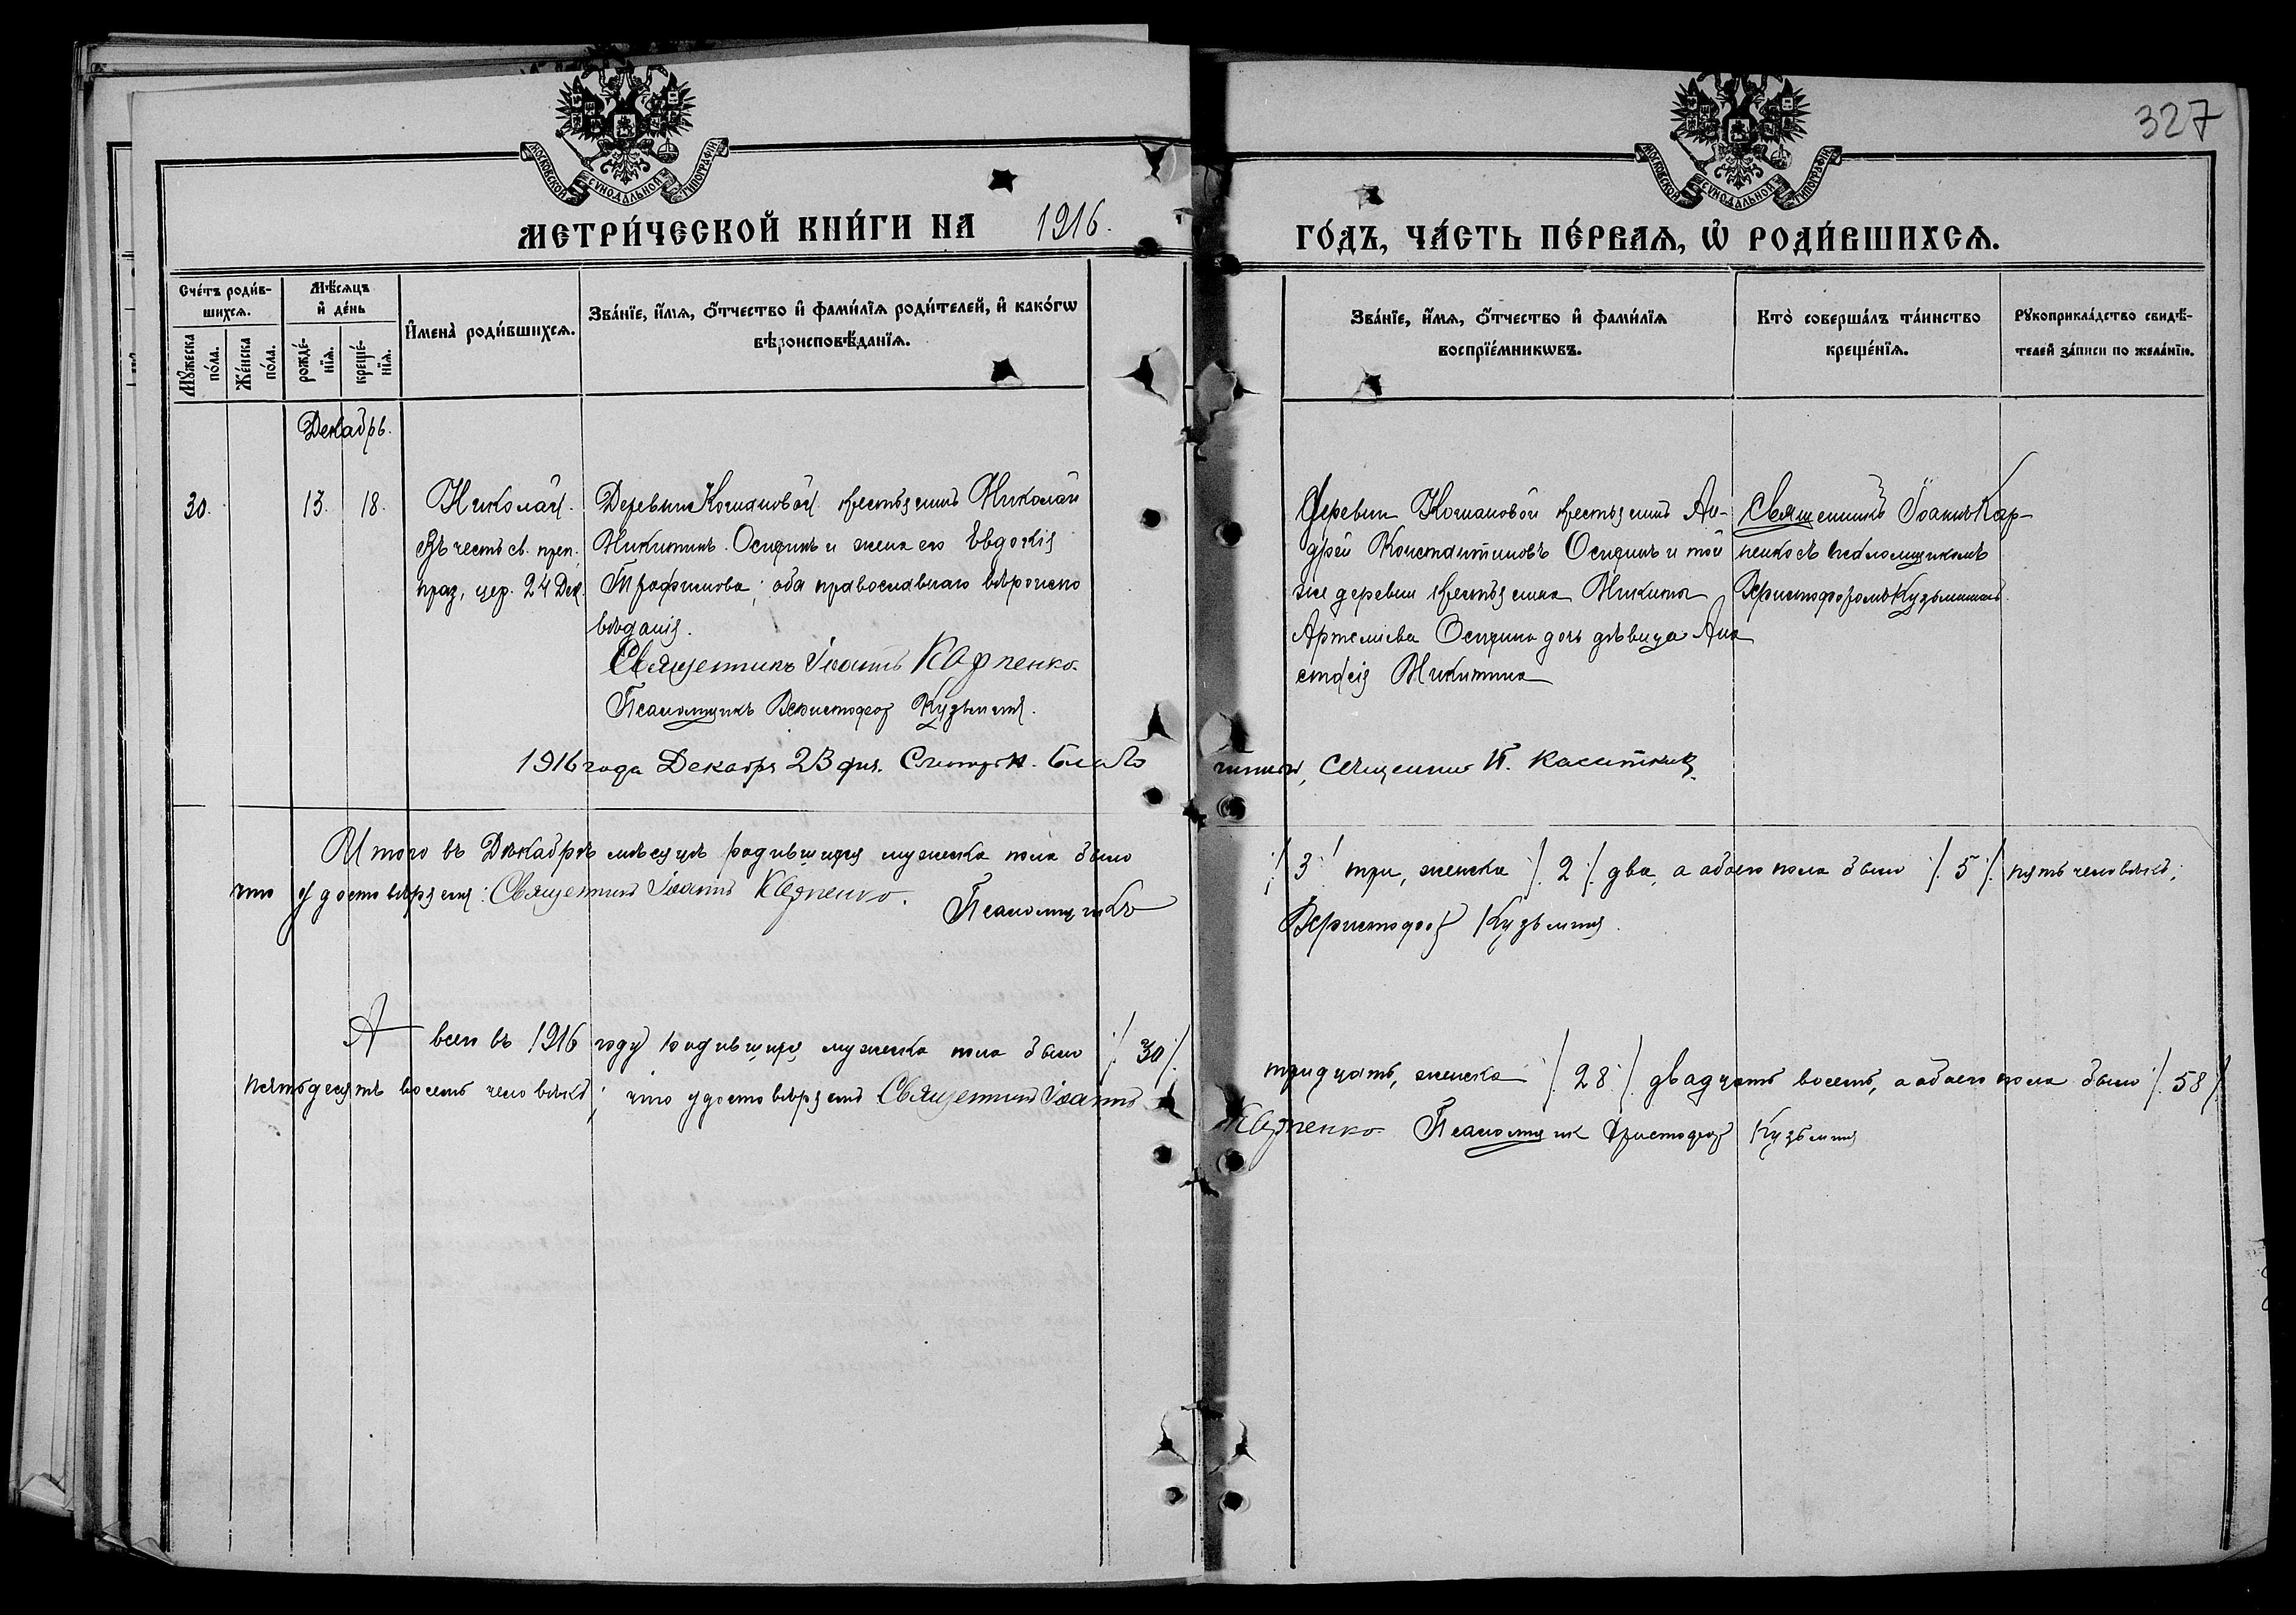 327
МОСКОВСКОЙ СУНОДАЛЬНОЙ ТИПОГРАФІИ
МОСКОВСКОЙ СУНОДАЛЬНОЙ ТИПОГРАФІИ
МЕТРИ́ЧЕСКОЙ КНИ́ГИ НА 1916.
ГО́ДЪ, ЧА́СТЬ ПЕ́РВАѦ, Ѡ РОДИ́ВШИХСѦ.
Сче́тъ роди́в-
шихсѧ.
Мꙋжеска по́ла.
Же́нска по́ла.
Мѣ́сѧцъ и҆ де́нь
рожде́-
нїѧ.
креще́-
нїѧ.
И҆мена̀ роди́вшихсѧ.
Зва́нїе, и҆́мѧ, ѻ҆́тчество и҆ фами́лїѧ роди́телей, и҆ како́гѡ
вѣроисповѣ́данїѧ.
Зва́нїе, и҆́мѧ, ѻ҆́тчество и҆ фами́лїѧ
воспрїе́мникѡвъ.
Кто̀ соверша́лъ та́инство
креще́нїѧ.
Рꙋкоприкла́дство свидѣ́-
телей за́писи по жела́нїю.
Декабрь.
30.
13.
18.
Николай.
Въ честь св. преп.
праз. цер. 24 Дек.
Деревни Кошановой крестьянинъ Николай
Никитинъ Осипинъ и жена его Евдокія
Трофимова; оба православнаго вѣроиспо
вѣданія.
Священникъ Іоаннъ Карпенко.
Псаломщикъ Христофор Кузьминъ.
Деревни Кошановой крестьянинъ Ан-
дрей Константиновъ Осипинъ и той
же деревни крестьянина Никиты
Артемьева Осипина дочь дѣвица Ана
стасія Никитина
Священникъ Іоаннъ Кар-
пенко съ псаломщикомъ
Христофоромъ Кузьминымъ.
1916 года Декабря 23 дня. Смотрѣн. Благо
чинный, Священник П.
Итого въ Декабрѣ мѣсяцѣ родившихся мужеска пола было /. 3 ./ три, женска /. 2 ./ два, а обоего пола было /. 5 ./ пять человѣкъ;
что удостовѣряемъ: Священникъ Іоаннъ Карпенко. Псаломщикъ Христофор Кузьминъ.
А всего въ 1916 году родившихся мужеска пола было /. 30 ./ тридцать, женска /. 28 ./ двадцать восемь, а обоего пола было /. 58 ./
пятьдесятъ восемь человѣкъ; что удостовѣряемъ Священникъ Іоаннъ Карпенко Псаломщик Христофор Кузьминъ